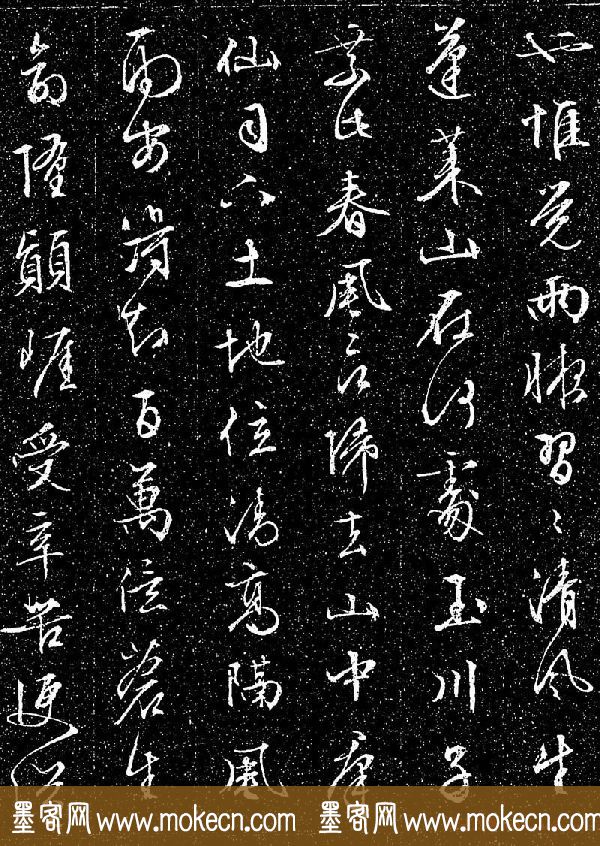 也惟覺兩腋習〻清風生
蓬萊山在何處玉川子
乘此春風歸去山中羣
仙司下土地位清高隔風
雨安得知百萬億蒼生
命墮顛崖受辛苦便
墨客网 www.mokecn.com 墨客网 www.mokecn.com